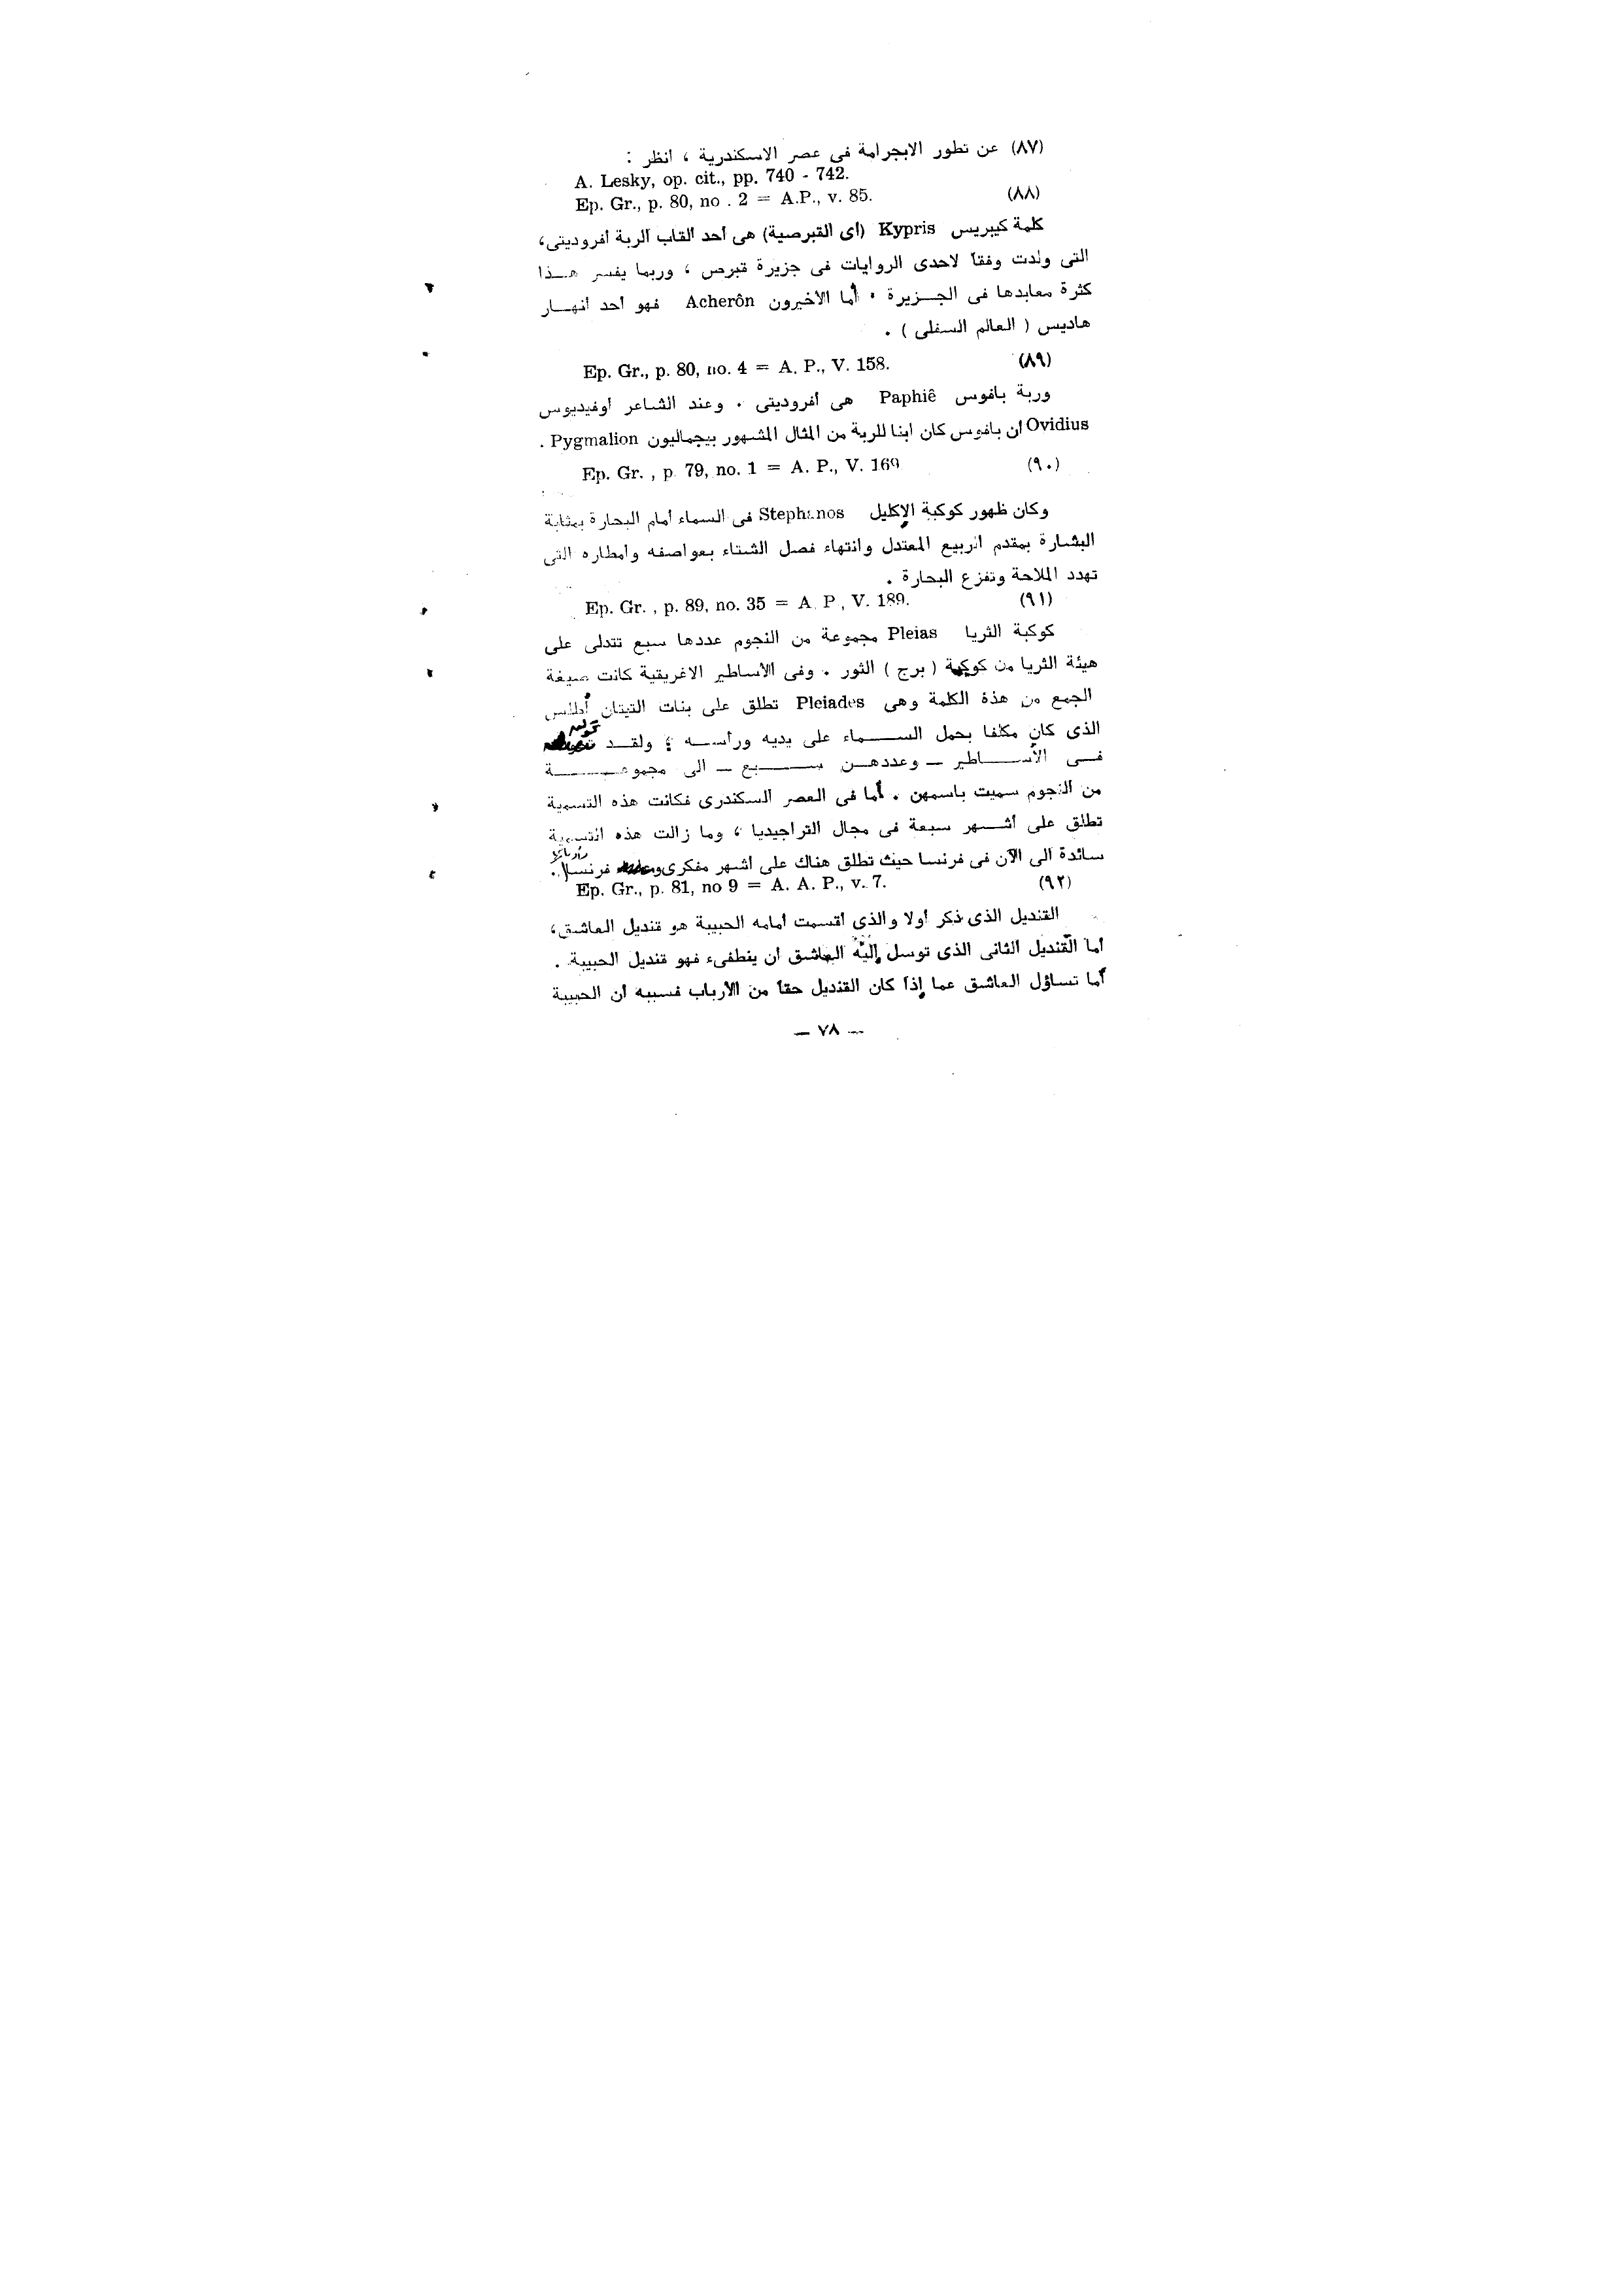 (٨٧) عن تطور الابجرامة فى عصر الاسكندرية ، انظر :
A. Lesky, op. cit., pp. 740 - 742.
(٨٨) Ep. Gr., p. 80, no . 2 = A.P., v. 85.
كلمة كيبريس Kypris (أى القبرصية) هى أحد ألقاب الربة أفروديتى،
التى ولدت وفقا لاحدى الروايات فى جزيرة قبرص ، وربما يفسر هـذا
كثرة معابدها فى الجـزيرة . أما الأخيرون Acherôn فهو أحد أنهـار
هاديس ( العالم السفلى ) .
(٨٩) Ep. Gr., p. 80, no. 4 = A. P., V. 158.
وربة بافوس Paphiê هى أفروديتى . وعند الشاعر أوفيديوس
Ovidius أن بافوس كان ابنا للربة من المثال المشهور بيجماليون Pygmalion .
(٩٠) Ep. Gr. , p. 79, no. 1 = A. P., V. 169
وكان ظهور كوكبة الإكليل Stephanos فى السماء أمام البحارة بمثابة
البشارة بمقدم الربيع المعتدل وانتهاء فصل الشتاء بعواصفه وأمطاره التى
تهدد الملاحة وتفزع البحارة .
(٩١) Ep. Gr. , p. 89, no. 35 = A. P., V. 189.
كوكبة الثريا Pleias مجموعة من النجوم عددها سبع تتدلى على
هيئة الثريا من كوكبة ( برج ) الثور . وفى الأساطير الاغريقية كانت صيغة
الجمع من هذة الكلمة وهى Pleiades تطلق على بنات التيتان أطلس
الذى كان مكلفا بحمل الســماء على يديه ورأسـه ؛ ولقـد
فـى الأسـاطير ــ وعددهـن سـبع ــ الى مجموعـة
من النجوم سميت باسمهن . أما فى العصر السكندرى فكانت هذه التسمية
تطلق على أشـهر سبعة فى مجال التراجيديا ، وما زالت هذه التسمية
سائدة الى الآن فى فرنسا حيث تطلق هناك على أشهر مفكرى فرنسا .
(٩٢) Ep. Gr., p. 81, no 9 = A. A. P., v. 7.
القنديل الذى ذكر أولا والذى أقسمت أمامه الحبيبة هو قنديل العاشق،
أما القنديل الثانى الذى توسل إليه العاشق أن ينطفىء فهو قنديل الحبيبة .
أما تساؤل العاشق عما إذا كان القنديل حقا من الأرباب فسببه أن الحبيبة
ــ ٧٨ ــ